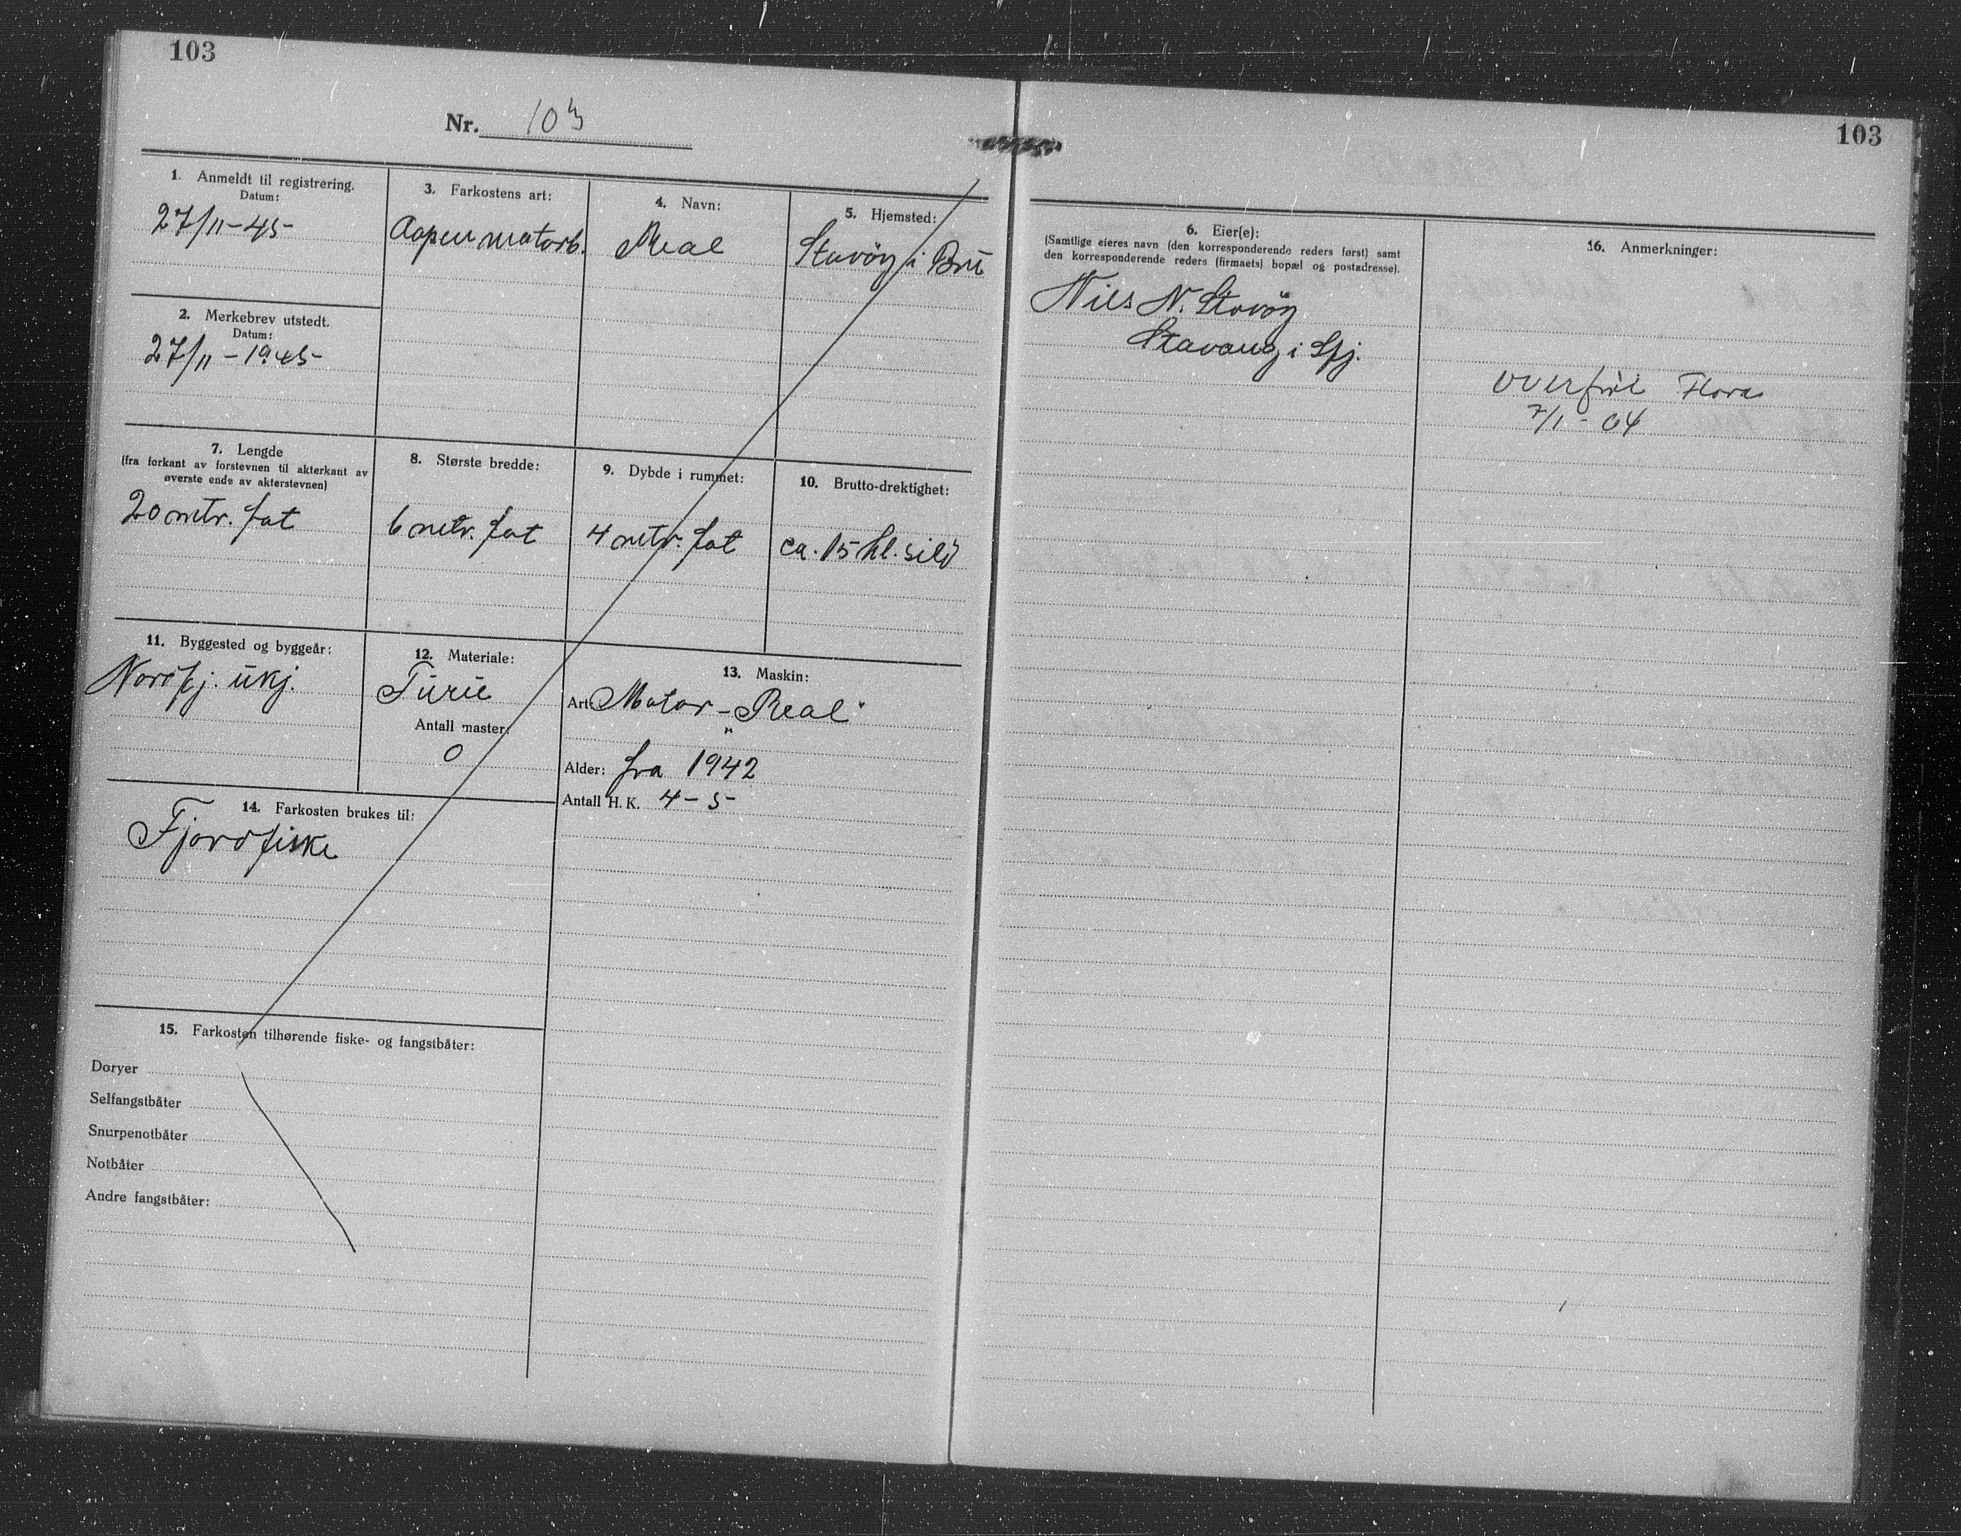 103
Nr. 103
1. Anmeldt til registrering.
Datum:
27/11-45-
2. Merkebrev utstedt.
Datum:
27/11-1945-
3. Farkostens art:
Aapen motorb.
4. Navn:
Real
5. Hjemsted:
Stavøy i Bru
7. Lengde
(fra forkant av forstevnen til akterkant av
øverste ende av akterstevnen)
20 metr. fot
8. Største bredde:
6 metr. fot
9. Dybde i rummet:
4 metr. fot
10. Brutto-drektighet:
ca. 15 hl. sild
11. Byggested og byggeår:
Nordfj. ukj.
12. Materiale:
Furu
Antall master:
0
13. Maskin:
Art: Motor - Real"
Alder: fra 1942
Antall H. K. 4-5-
14. Farkosten brukes til:
Fjordfiske
15. Farkosten tilhørende fiske- og fangstbåter:
Doryer
Selfangstbåter
Snurpenotbåter
Notbåter
Andre fangstbåter:
103
6. Eier(e):
(Samtlige eieres navn (den korresponderende reders først) samt
den korresponderende reders (firmaets) bopæl og postadresse).
Nils N. Stavøy
Stavang i Sfj.
16. Anmerkninger:
overført Flora
7/1-64